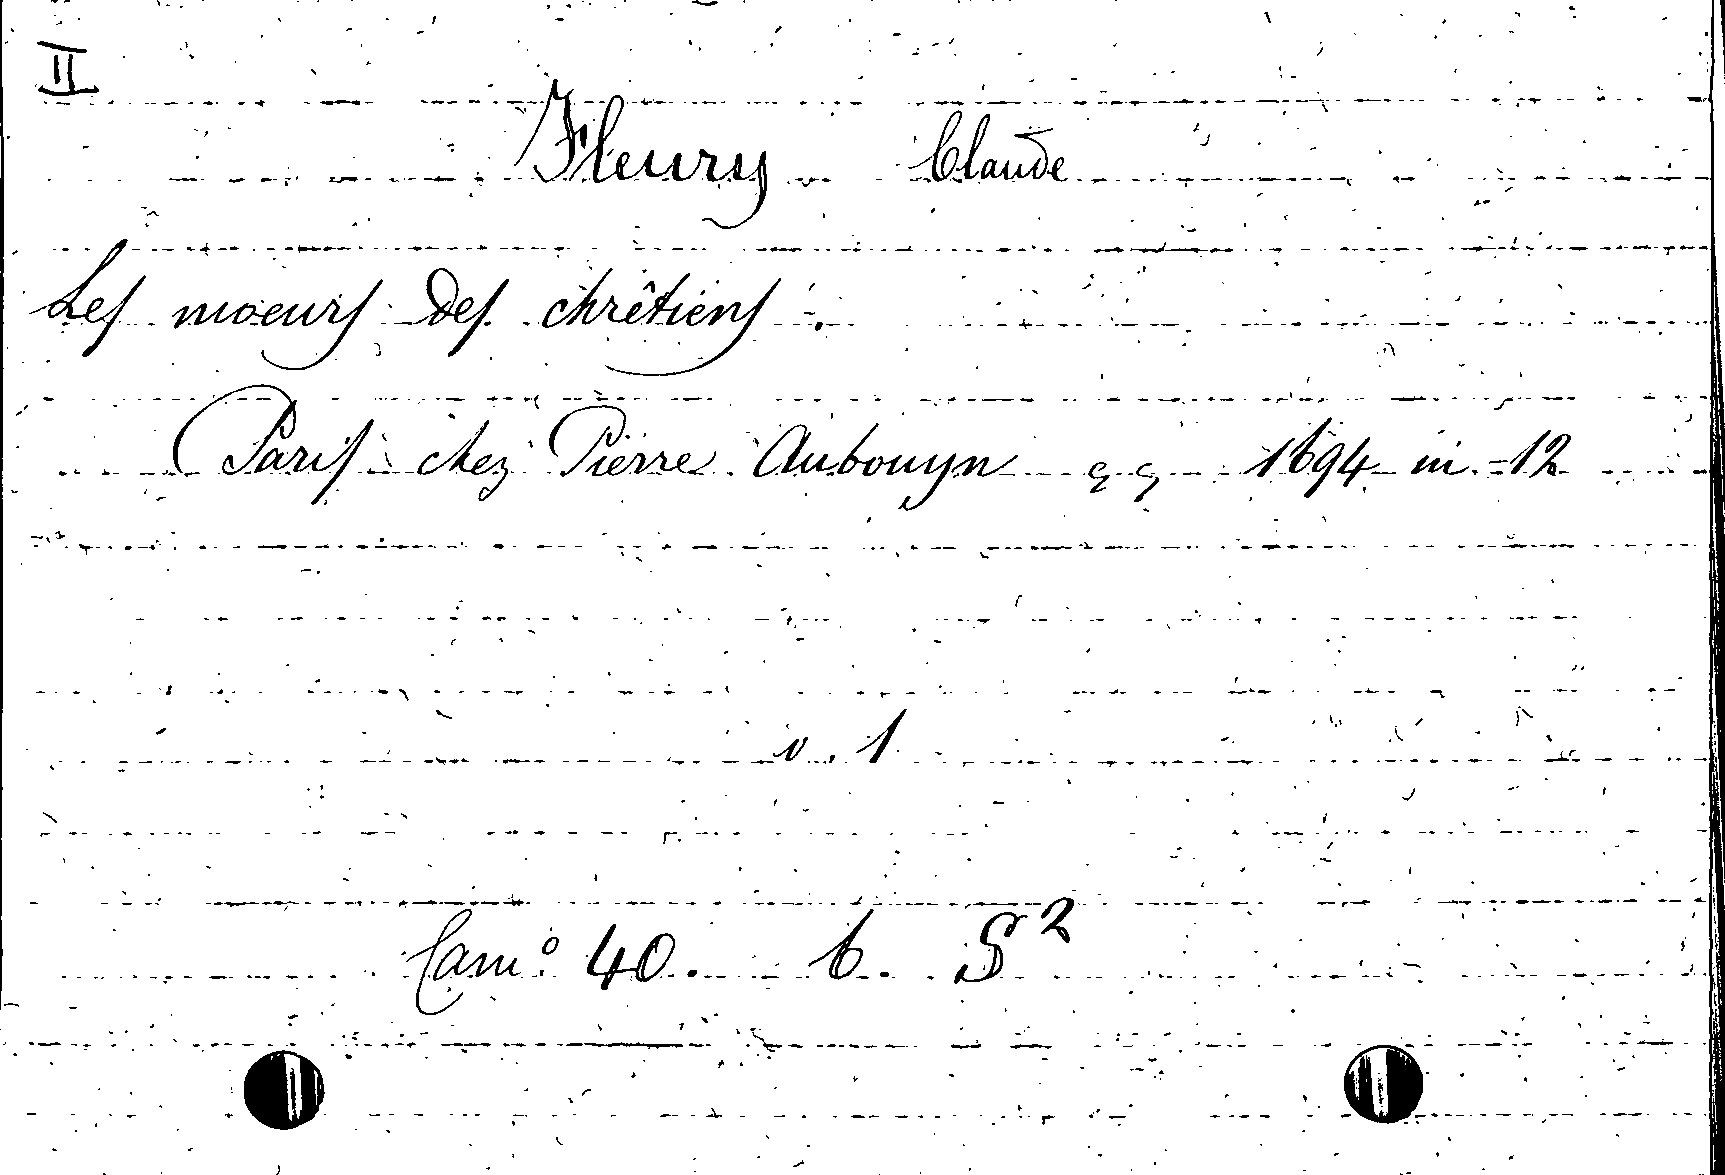 II
Fleury Claude
Les moeurs des chrêtiens.
Paris chez Pierre Aubouyn 1694 in-12
v. 1
Cam° 40. b. S²